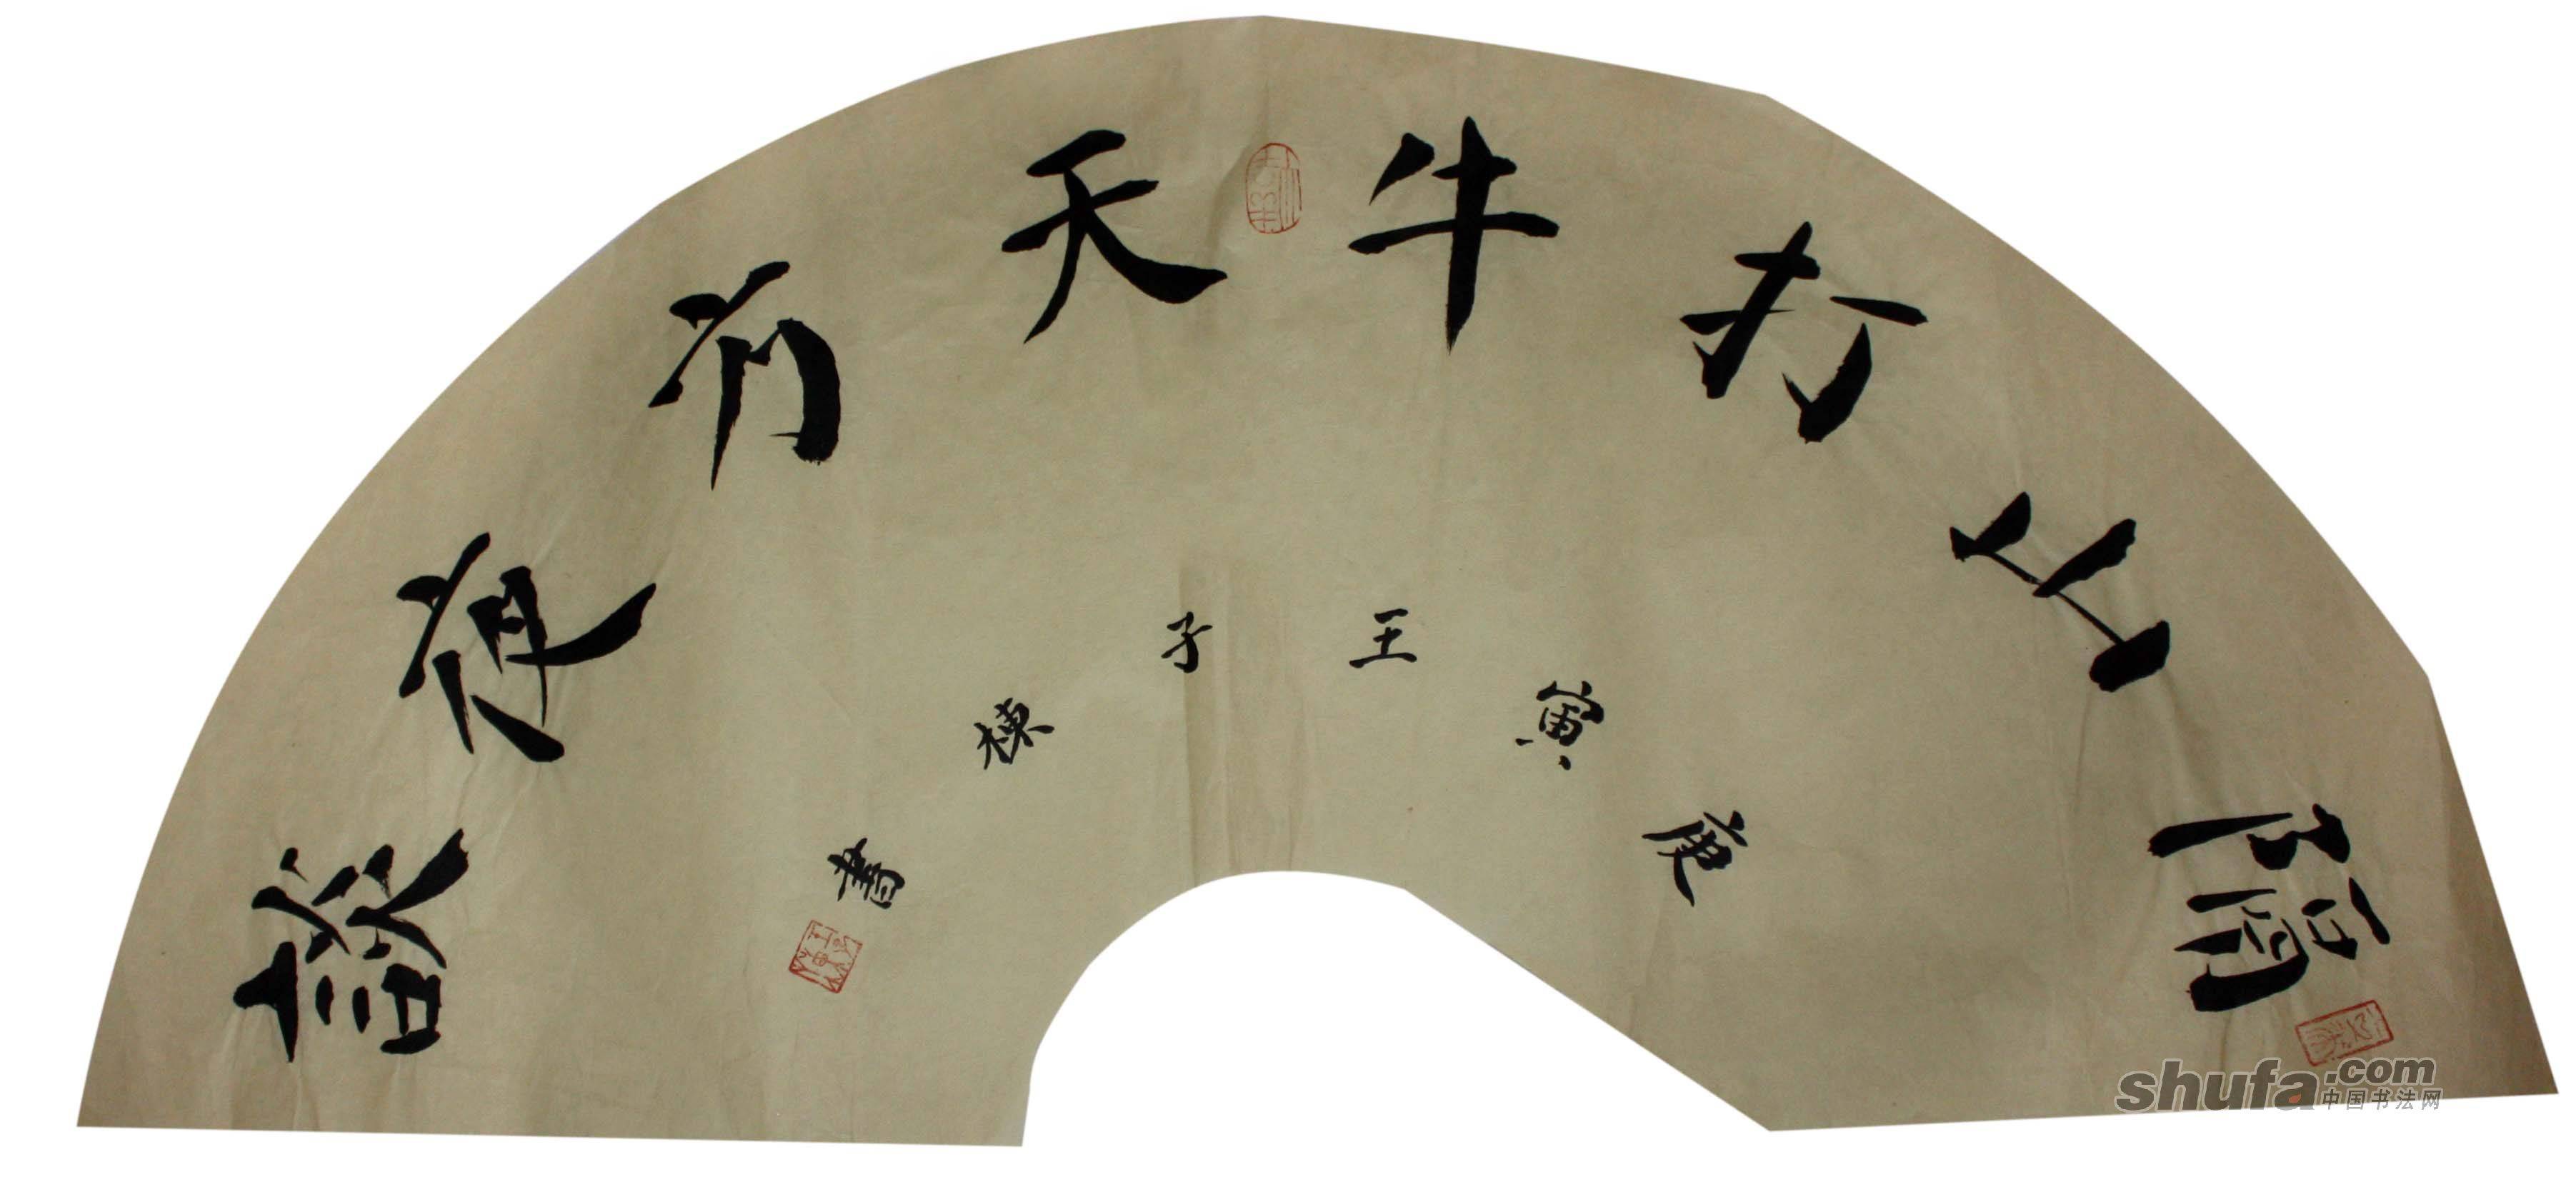 隔山打牛天方夜談
庚寅王子棟書
shufa.com
中国书法网